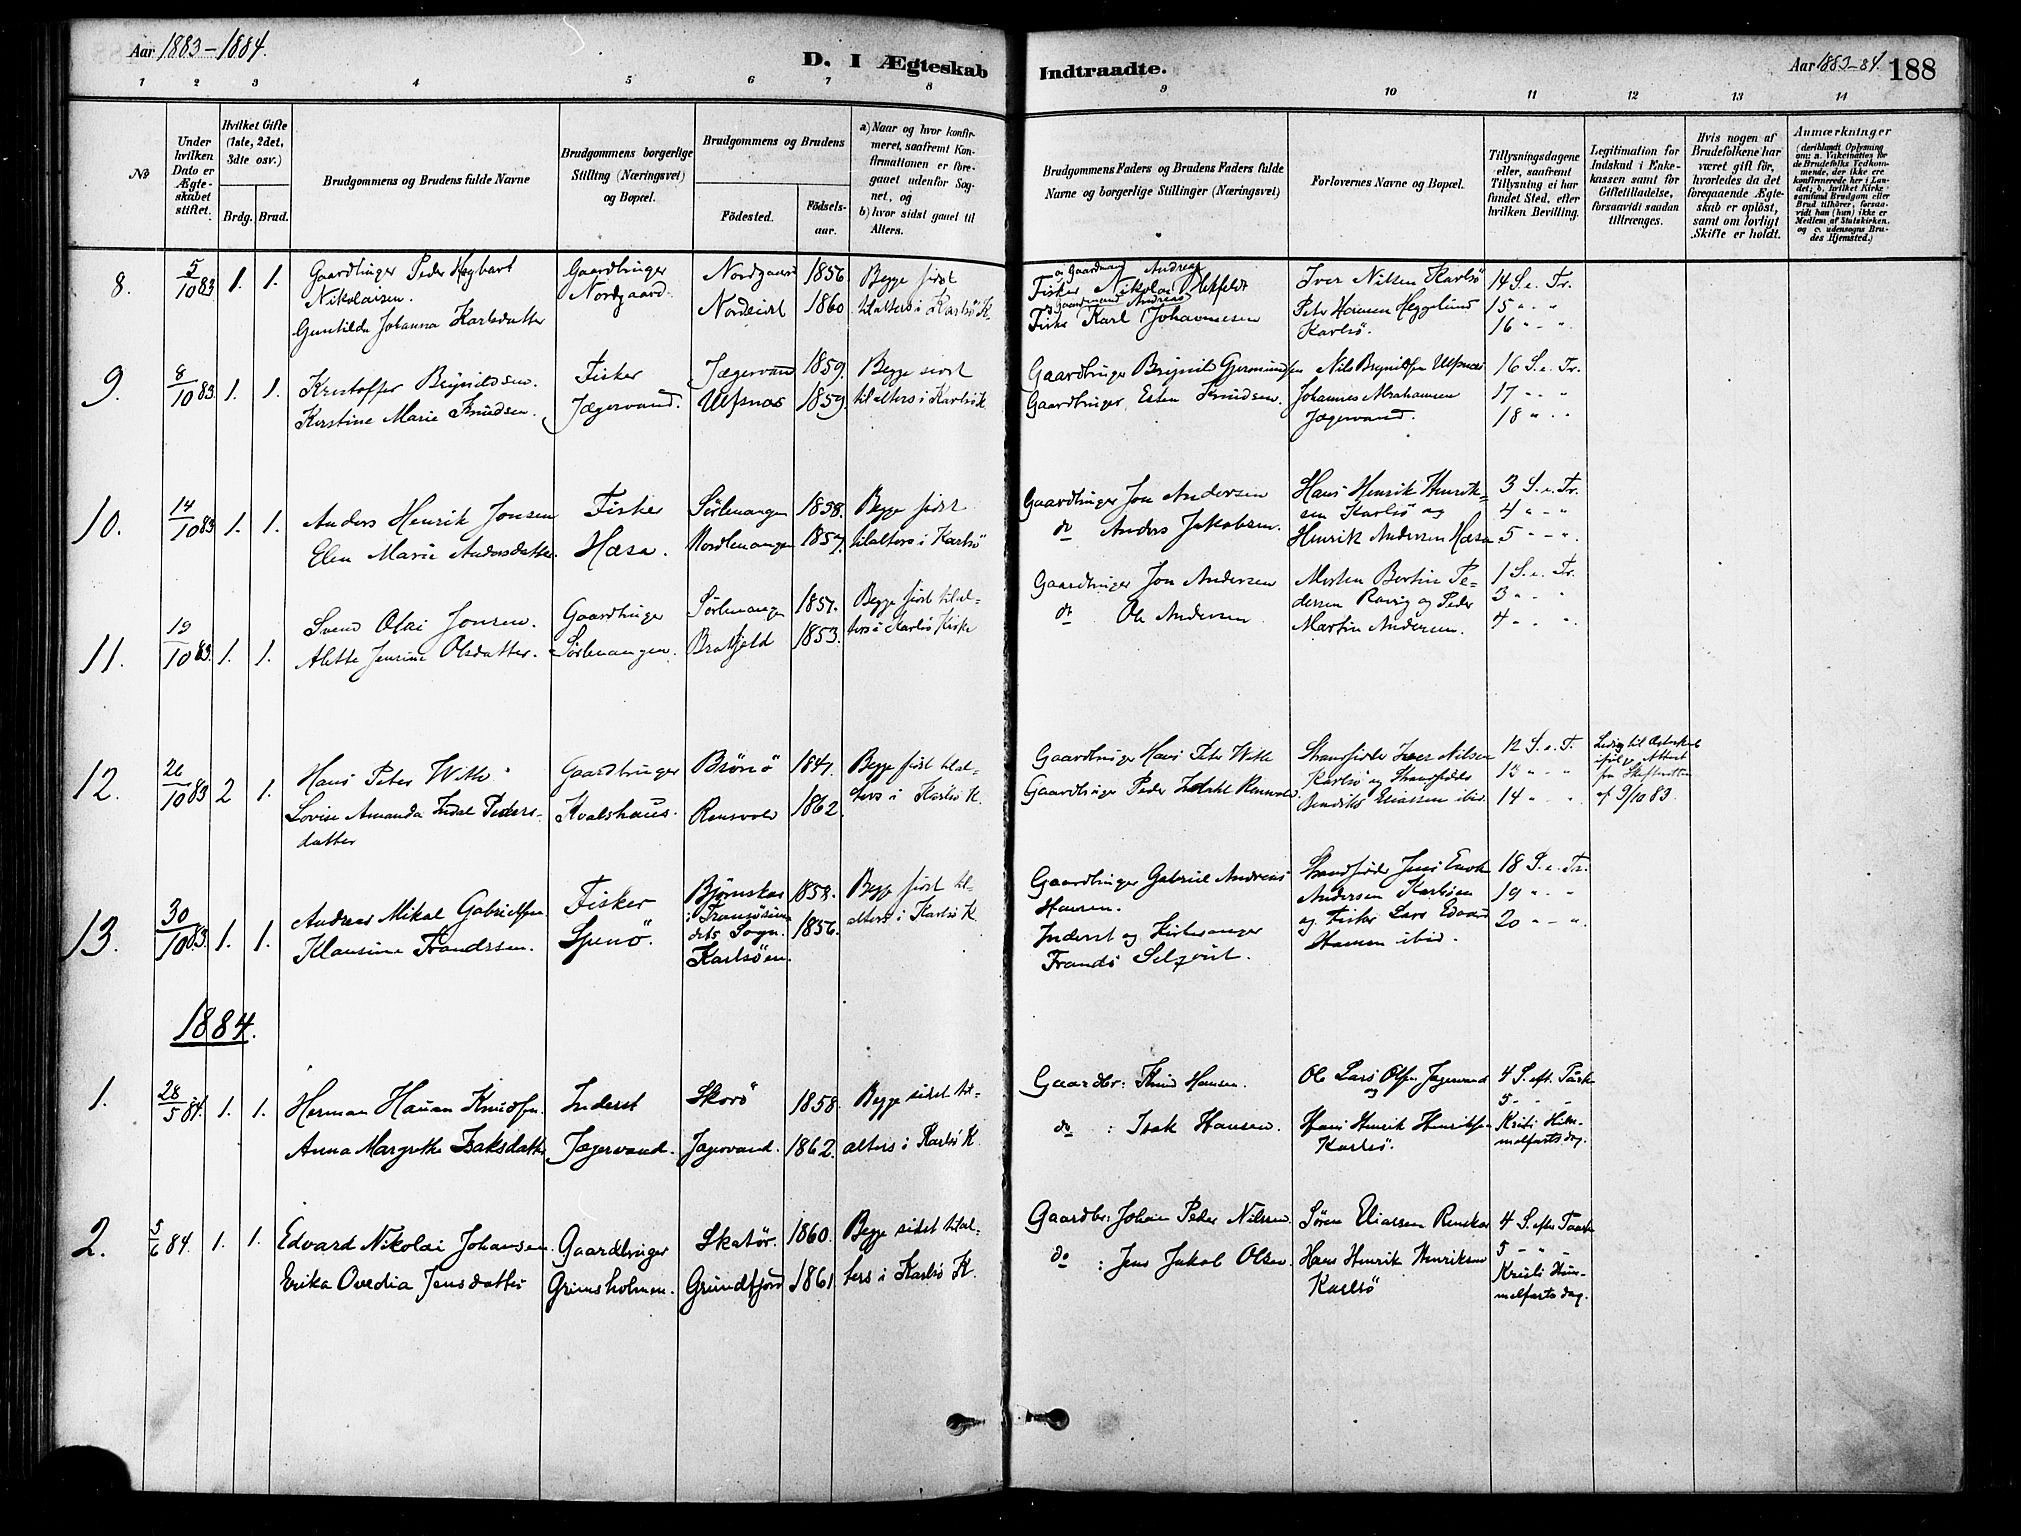 Aar 1883–1884.
D. I Ægteskab
Indtraadte.
Aar 1883–84. 188
1 2 3 4 5 6 7 8 9 10 11 12 13 14
No
Under hvilken Dato er Ægteskabet stiftet.
Hvilket Gifte (1ste, 2det, 3dte osv.)
Brdg. Brud.
Brudgommens og Brudens fulde Navne
Brudgommens borgerlige Stilling (Næringsvei) og Bopæl.
Brudgommens og Brudens
Fødested.
Fødselsaar.
a) Naar og hvor konfirmeret, saafremt Konfirmationen er foregaaet udenfor Sognet, og
b) hvor sidst gaaet til Alters.
Brudgommens Faders og Brudens Faders fulde Navne og borgerlige Stillinger (Næringsvei)
Forlovernes Navne og Bopæl.
Tillysningsdagene eller, saafremt Tillysning ei har fundet Sted, efter hvilken Bevilling.
Legitimation for Indskud i Enkekassen samt for Giftetilladelse, forsaavidt saadan tiltrænges.
Hvis nogen af Brudefolkene har været gift før, hvorledes da det foregaaende Ægteskab er opløst, samt om lovligt Skifte er holdt.
Anmærkninger (deriblandt Oplysning om: a. Vakcination for de Brudefolks Vedkommende, der ikke ere konfirmerede her i Landet; b. hvilket Kirkesamfund Brudgom eller Brud tilhører, forsaavidt han (hun) ikke er Medlem af Statskirken, og c. udensogns Brudes Hjemsted.)
8. 5/10 83 1. 1. Gaardbruger Peder Hegbart
Nikolaisen.
Guntilda Johanna Karlsdatter
Gaardbruger
Nordgaard.
Nordgaard 1856
Nordeidet 1860
Begge sidst
til alters i Karlsö K.
Fisker og Gaardmand Nikolai Andreas
Fisker og Gaardmand Karl Andreas Johannesen
Iver Nilsen Karlsö
Peter Hansen Hegglund
Karlsö.
14 S. e. Tr.
15 " - "
16 " - "
9. 8/10 83. 1. 1. Kristoffer Brynildsen.
Kirstine Marie Knudsen.
Fisker
Jægervand.
Jægervand 1859.
Ulfsnæs 1859.
Begge sidst
til alters i Karlsö K.
Gaardbruger Brynild Gjermundsen
Gaardbruger Esten Knudsen.
Nils Brynildsen Ulfsnæs
Johannes Abrahamsen
Jægervand.
16 S. e. Tr.
17 " - "
18 " - "
10. 14/10 83 1. 1. Anders Henrik Jonsen
Elen Marie Andersdatter
Fisker
Hæsa.
Sörlenangen 1858.
Nordlenangen 1857.
Begge sidst
til alters i Karlsö
Gaardbruger Jon Andersen
do Anders Jakobsen.
Hans Henrik Henrik-
sen Karlsö og
Henrik Andersen Hæsa
3 S. e. Tr.
4 " - "
5 " - "
11. 19/10 83. 1. 1. Svend Olai Jonsen.
Alette Jensine Olsdatter.
Gaardbruger
Sörlenangen.
Sörlenangen 1857.
Bratfjeld 1853.
Begge sidst til al-
ters i Karlsö Kirke
Gaardbruger Jon Andersen
do Ole Andersen
Morten Bertin Pe-
dersen Ravig og Peder
Martin Andersen.
1 S. e. Tr.
3 " - "
4 " - "
12. 26/10 83 2 1. Hans Peter Witte
Lovise Amanda Indal Peders-
datter
Gaardbruger
Kvalshaus.
Brönö 1847.
Rensvold 1862.
Begge sidst til al-
ters i Karlsö K.
Gaardbruger Hans Peter Witte
Gaardbruger Peder Indahl Rensvold
Strandsidder Iver Nilsen
Karlsö og Strandsidder
Bendiks Eliassen ibid.
12 S. e. T.
13 " - "
14 " - "
Ledig til Ægteskab
ifölge Attest
fra Skifteretten
af 9/10 83.
13. 30/10 83. 1. 1. Andreas Mikal Gabrielsen.
Klausine Frandssen.
Fisker
Spenö.
Björnskar
i Tromsösun-
dets Sogn. 1858.
Karlsöen. 1856.
Begge sidst til-
alters i Karlsö K.
Gaardbruger Gabriel Andreas
Hansen.
Inderst og Kirkesanger
Frands Selqvist.
Strandsidder Jens Enok
Andersen Karlsöen
og Fisker Lars Edvard
Hansen ibid.
18 S. e. Tr.
19 " - "
20 " - "
1884.
1. 28/5 84. 1. 1. Herman Hauan Knudsen.
Anna Margrethe Isaksdatter
Inderst
Jægervand.
Skorö 1858.
Jægervand. 1862.
Begge sidst til-
alters i Karlsö K.
Gaardbr: Knud Hansen.
do : Isak Hansen.
Ole Lars Olsen Jægervand
og
Hans Henrik Henriksen
Karlsö.
4 S. eft. Påske
5 - " -
Kristi Him-
melfartsdag.
2. 5/6 84. 1. 1. Edvard Nikolai Johansen.
Erika Ovedia Jensdatter
Gaardbruger
Grimsholmen.
Skatör. 1860.
Grundfjord 1861.
Begge sidst til al-
ters i Karlsö K.
Gaardbr: Johan Peder Nilssen.
do : Jens Jakob Olsen.
Sören Eliassen Renskar
Hans Henrik Henriksen
Karlsö
4 S. efter Paaske
5 - " -
Kristi Him-
melfartsdag.